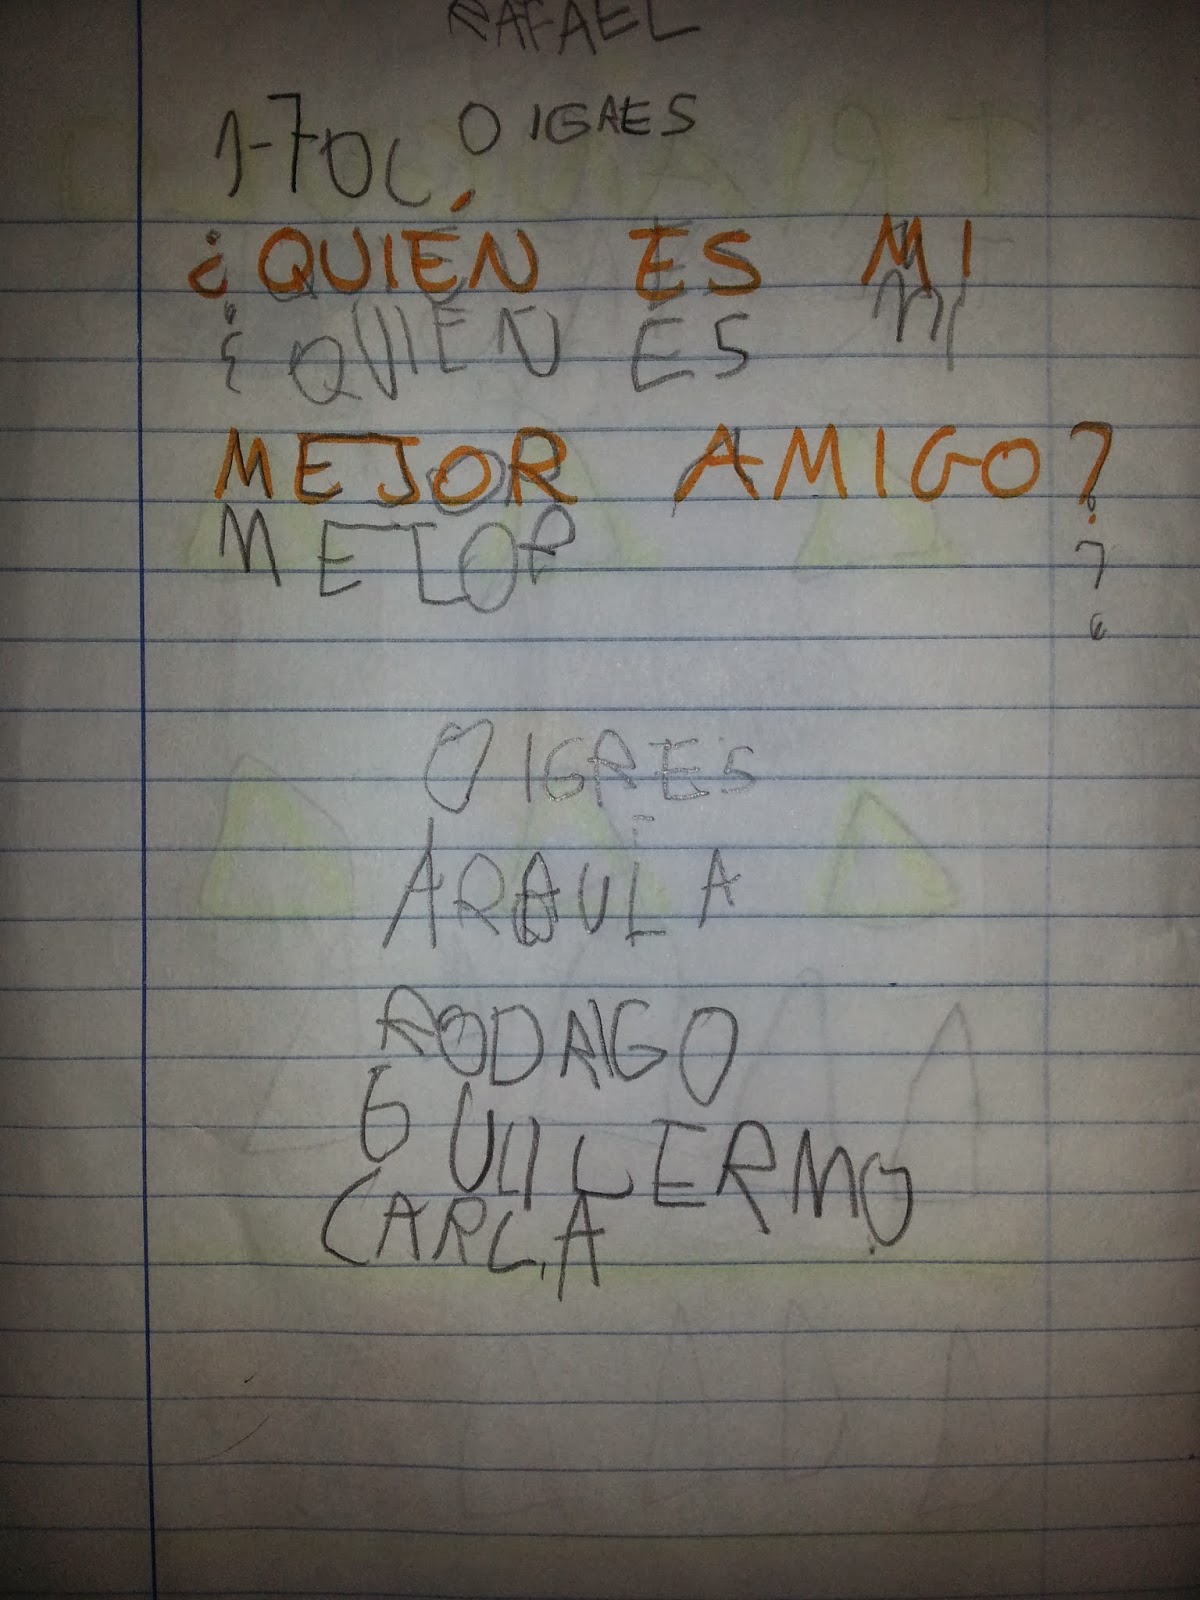 RAFAEL
1-7OC OIGRES
¿QUIÉN ES MI
¿QUIÉN ES MI
MEJOR AMIGO?
MEJOR ?
OIGRES
ARAUL A
RODRIGO
GUILLERMO
CARLA